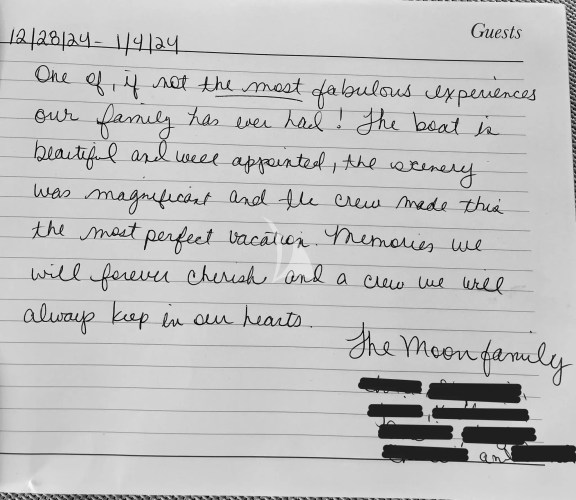 Guests
12/28/24 - 1/4/24
One of, if not the most fabulous experiences
our family has ever had! The boat is
beautiful and well appointed, the scenery
was magnificant and the crew made this
the most perfect vacation. Memories we
will forever cherish and a crew we will
always keep in our hearts.
The Moon family
and